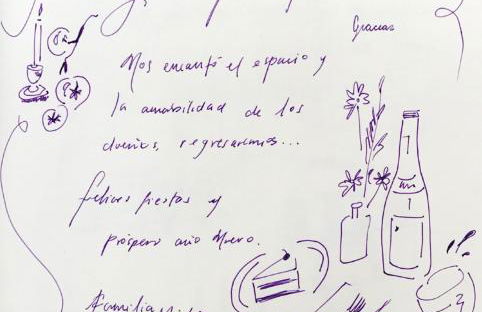 Gracias
Nos encantó el espacio y
la amabilidad de los
dueños, regresaremos...
felices fiestas y
próspero año Nuevo.